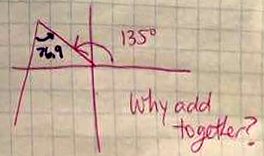 135°
76.9
Why add
together?